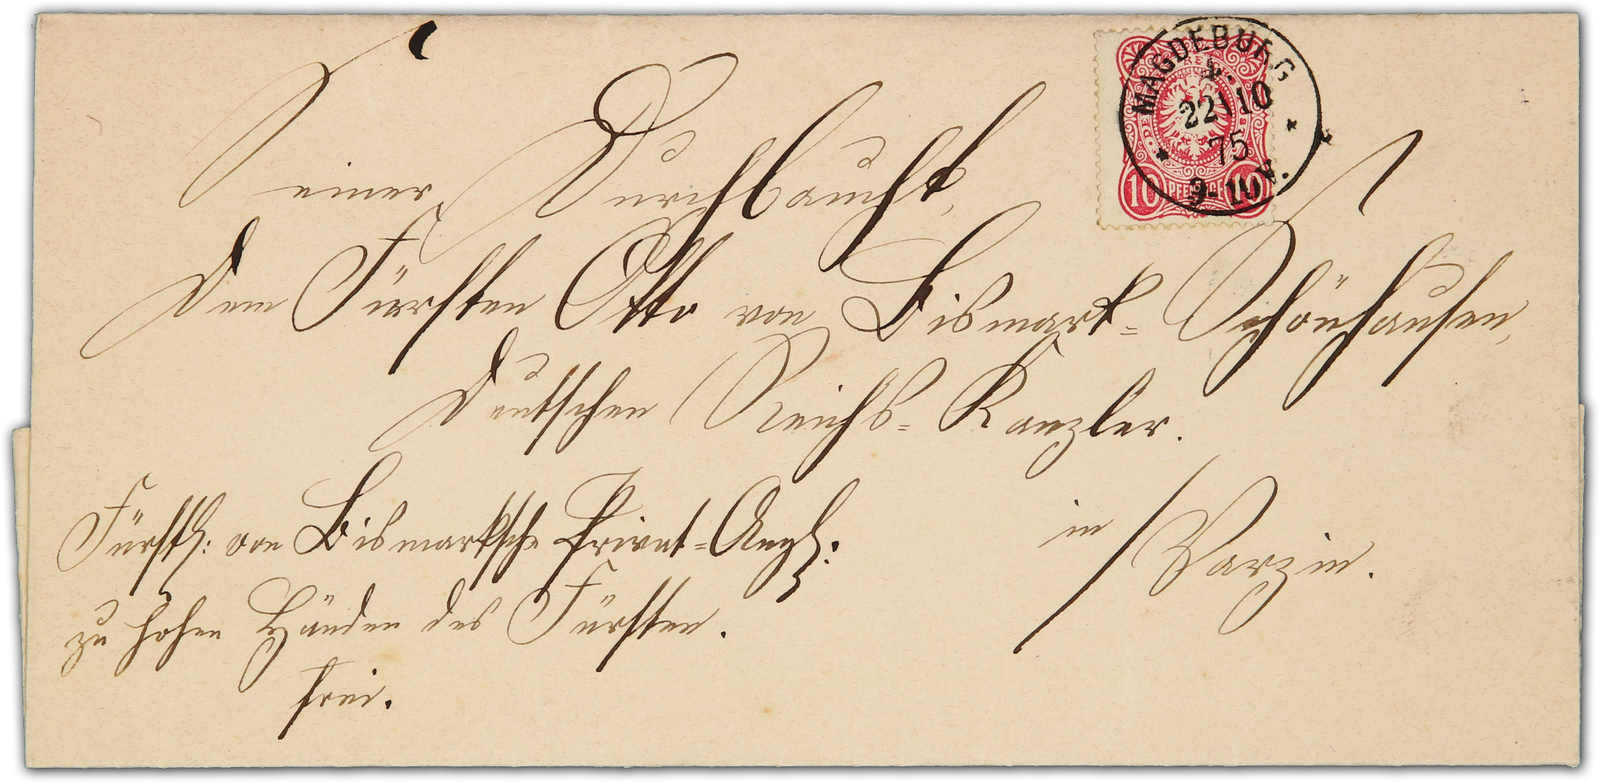 Seiner Durchlaucht,
dem Fürsten Otto von Bismark=Schönhausen,
Deutschen Reichs=Kanzler.
in Varzin.
Fürstl: von Bismarksche Privat=Angl:
zu hohen Händen des Fürsten.
frei.
MAGDEBURG
22 10
75
9-10V.
10 PFENNIGE 10